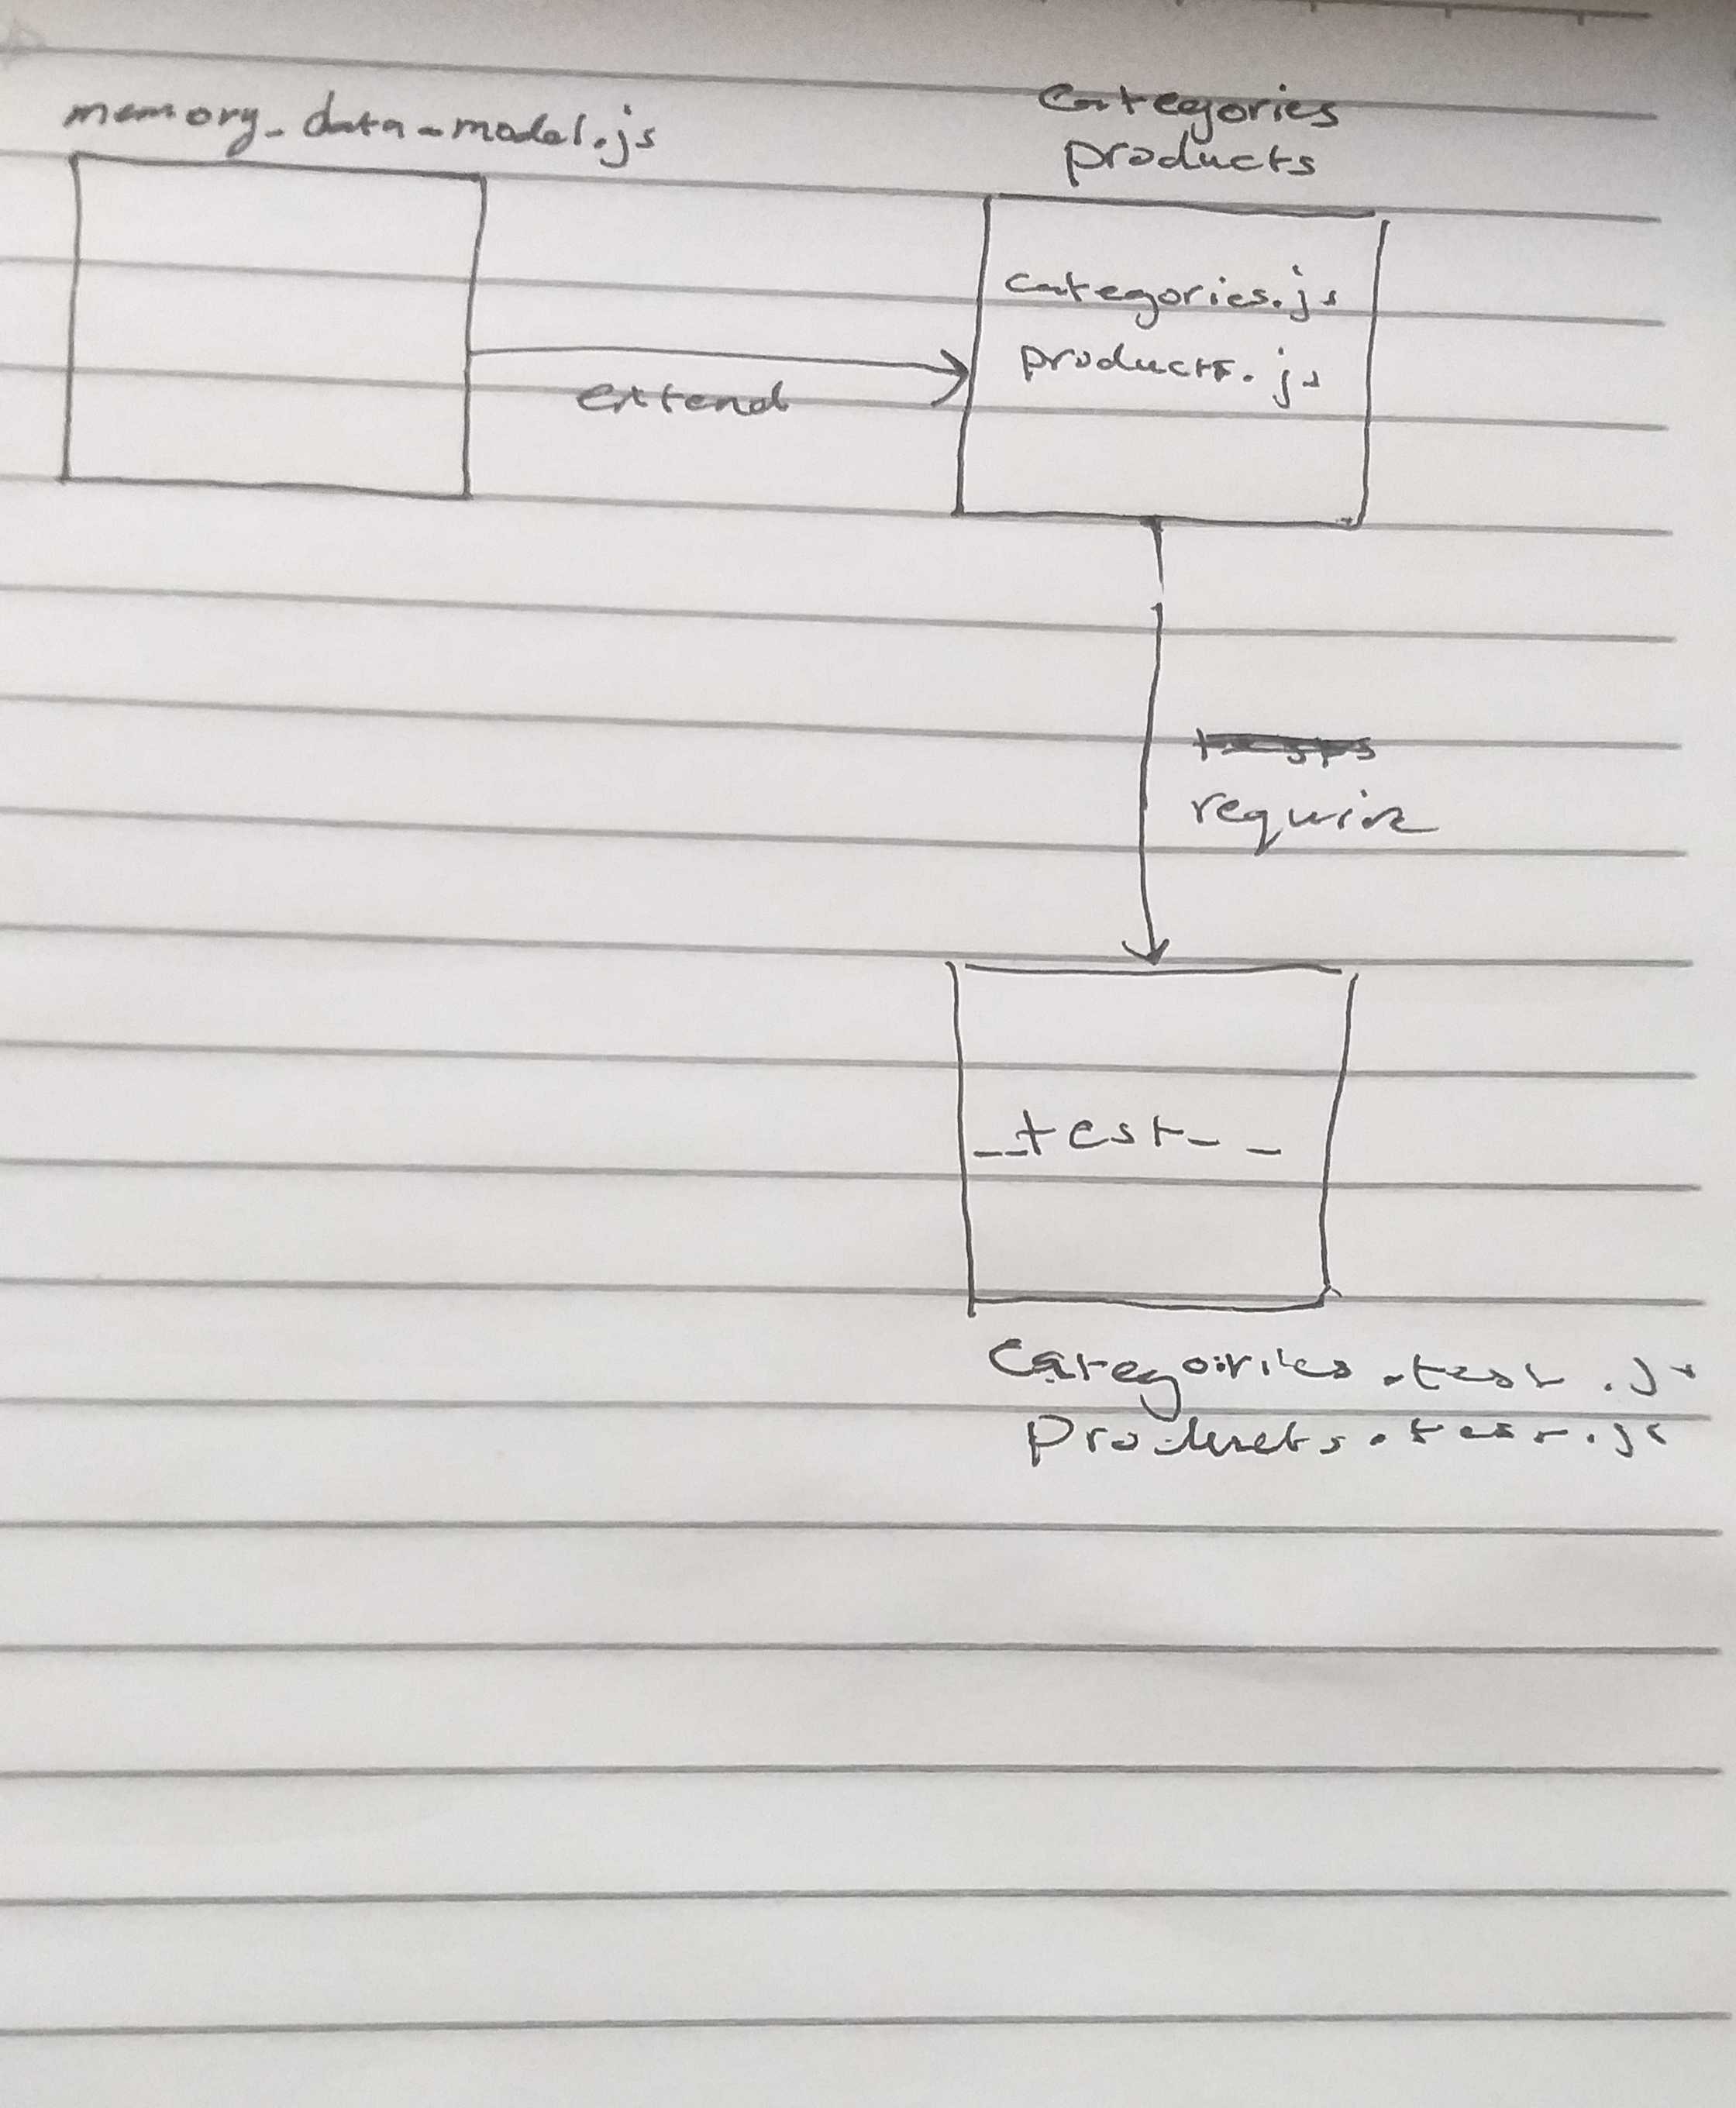 memory_data_model.js
Categories
products
categories.js
products.js
extend
tests
require
__test__
Categories.test.js
Products.test.js